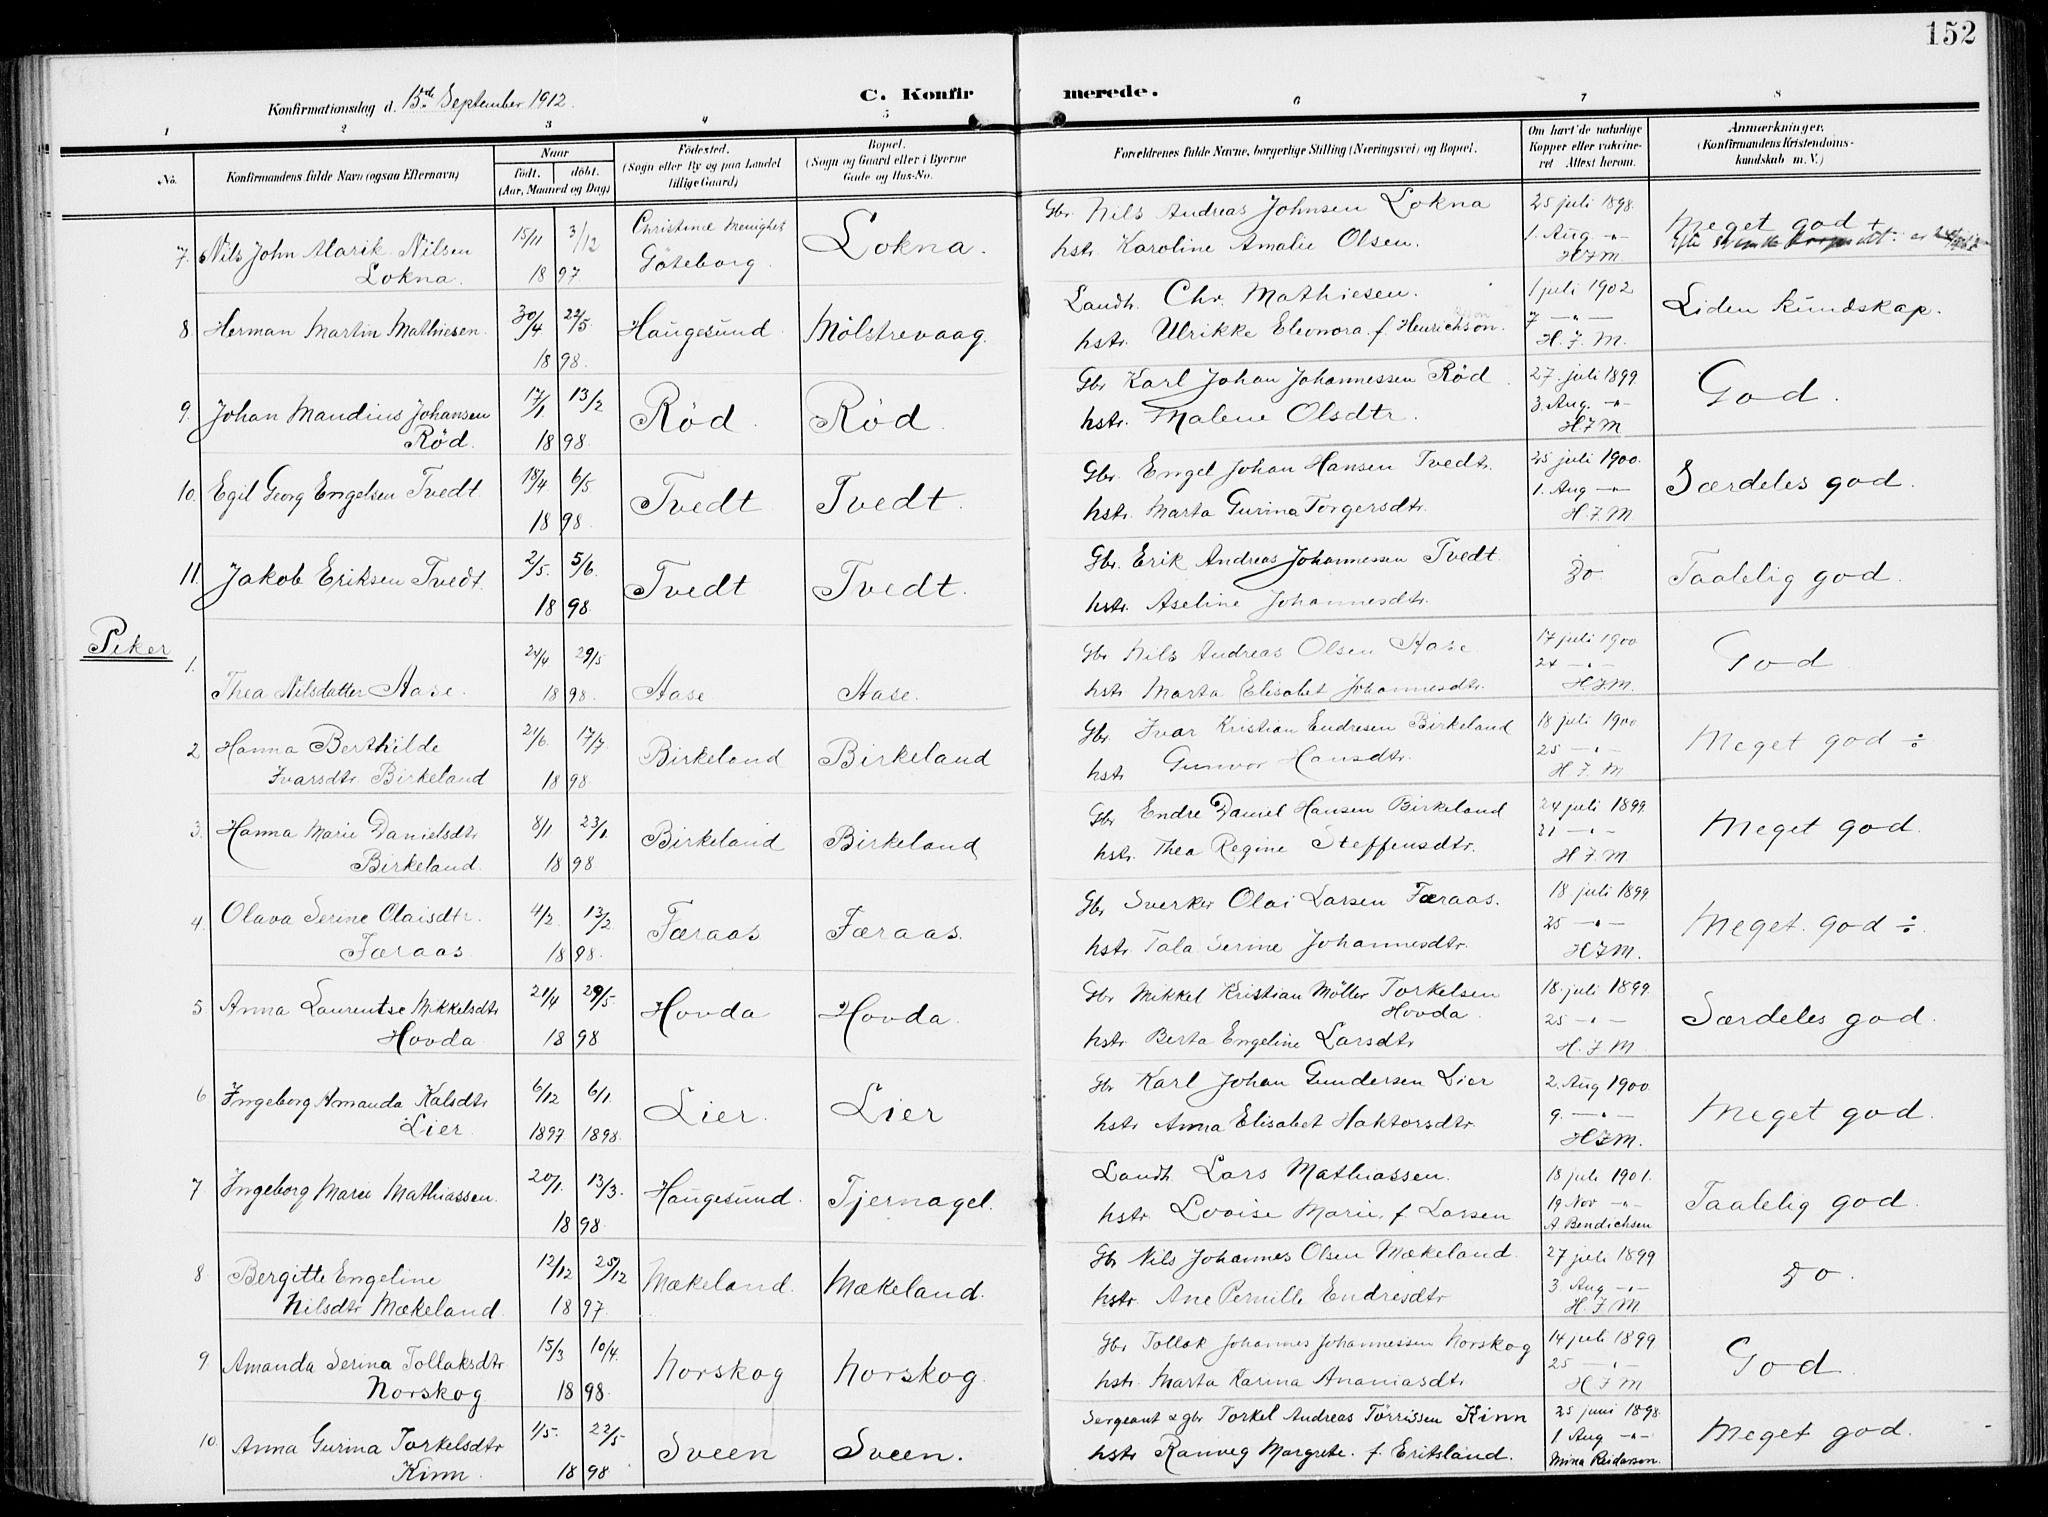 152
Konfirmationsdag d. 15de September 1912.
C. Konfirmerede.
1 2 3 4 5 6 7 8
No.
Konfirmandens fulde Navn (ogsaa Efternavn)
Naar
födt. döbt.
(Aar, Maaned og Dag)
Födested.
(Sogn eller By og paa Landet
tillige Gaard)
Bopæl.
(Sogn og Gaard eller i Byerne
Gade og Hus-No.
Forældrenes fulde Navne, borgerlige Stilling (Næringsvei) og Bopæl.
Om havt de naturlige
Kopper eller vakcine-
ret Attest herom.
Anmærkninger.
(Konfirmandens Kristendoms-
kundskab m. V.)
7. Nils John Alarik Nilsen
Lokna.
15/11 3/12
18 97
Christine Menighet
Göteborg.
Lokna.
Gbr. Nils Andreas Johnsen Lokna
hstr. Karoline Amalie Olsen.
25 juli 1898.
1. Aug -"-
H F M
Meget god +
8. Herman Martin Mathiesen.
30/4 22/5.
18 98.
Haugesund
Mølstrevaag.
Landh. Chr. Mathiesen.
hstr. Ulrikke Eleonora f Henrichson.
1 juli 1902
7 -"-
H. F. M.
Liden kundskap.
9. Johan Mandius Johansen
Rød.
17/1 13/2
18 98.
Rød.
Rød.
Gbr Karl Johan Johannessen Rød.
hstr. Malene Olsdtr.
27. juli 1899.
3. Aug. -"-
H F M
God.
10. Egil Georg Engelsen Tvedt
18/4. 6/5
18 98.
Tvedt.
Tvedt.
Gbr. Engel Johan Hansen Tvedt.
hstr. Marta Gurina Torgersdtr.
25 juli 1900.
1. Aug -"-
H. F. M
Særdeles god.
11. Jakob Eriksen Tvedt.
2/5. 5/6.
18 98.
Tvedt
Tvedt.
Gbr. Erik Andreas Johannessen Tvedt.
hstr. Aseline Johannesdtr.
Do.
Taalelig god.
Piker
1. Thea Nilsdatter Aase.
24/4 29/5
18 98.
Aase
Aase.
Gbr Nils Andreas Olsen Aase
hstr Marta Elisabet Johannesdtr.
17 juli 1900
24 -"-
H F M.
God.
2 Hanna Berthilde
Ivarsdtr. Birkeland
21/6. 17/7
18 98
Birkeland
Birkeland
Gbr. Ivar Kristian Endresen Birkeland
hstr Gunvor Hansdtr.
18 juli 1900
25 -"-
H F M
Meget god ÷
3. Hanna Marie Danielsdtr
Birkeland.
8/1 23/1
18 98
Birkeland
Birkeland
Gbr Endre Daniel Hansen Birkeland
hstr. Thea Regine Steffensdtr.
24 juli 1899.
31 -"-
H F M.
Meget god.
4. Olava Serine Olaisdtr.
Færaas
4/2 13/2
18 98.
Færaas
Færaas.
Gbr Sverker Olai Larsen Færaas.
hstr. Tala Serine Johannesdtr.
18 juli 1899.
25 -"-
H F M.
Meget god ÷.
5 Anna Laurentse Mikkelsdtr
Hovda
21/4 29/5
18 98
Hovda
Hovda.
Gbr Mikkel Kristian Möller Torkelsen
Hovda.
hstr Berta Engeline Larsdtr
18. juli 1899.
25 -"-
H. F. M.
Særdeles god.
6 Ingeborg Amanda Kalsdtr
Lier.
6/12 6/1.
1897 1898.
Lier.
Lier
Gbr Karl Johan Gundersen Lier
hstr Anna Elisabet Haktorsdtr.
2. Aug 1900.
9. -"-
H F M.
Meget god.
7 Ingeborg Marie Mathiassen.
20/1. 13/3.
18 98.
Haugesund.
Tjernagel.
Landh. Lars Mathiassen.
hstr. Lovise Marie. f. Larsen
18 juli 1901.
19 Nov -"-
A Bendichsen
Taalelig god.
8 Bergitte Engeline
Nilsdtr Mækeland.
12/12 25/12
18 97.
Mækeland.
Mækeland.
Gbr Nils Johannes Olsen Mækeland.
hstr. Ane Pernille Endresdtr
27 juli 1899
3 Aug -"-
H. F M
Do.
9 Amanda Serina Tollaksdtr
Norskog
15/3 10/4.
18 98.
Norskog
Norskog.
Gbr Tollak Johannes Johannessen Norskog
hstr. Marta Karina Ananiasdtr
14 juli 1899
25 -"-
H F M
God.
10. Anna Gurina Torkelsdtr
Kinn.
1/5. 22/5
18 98
Sveen
Sveen.
Sergeant & gbr Torkel Andreas Törrissen Kinn
hstr Ranveg Margrete. f. Eritsland.
25 juni 1898.
1 Aug -"-
Mina Reidarson.
Meget god.